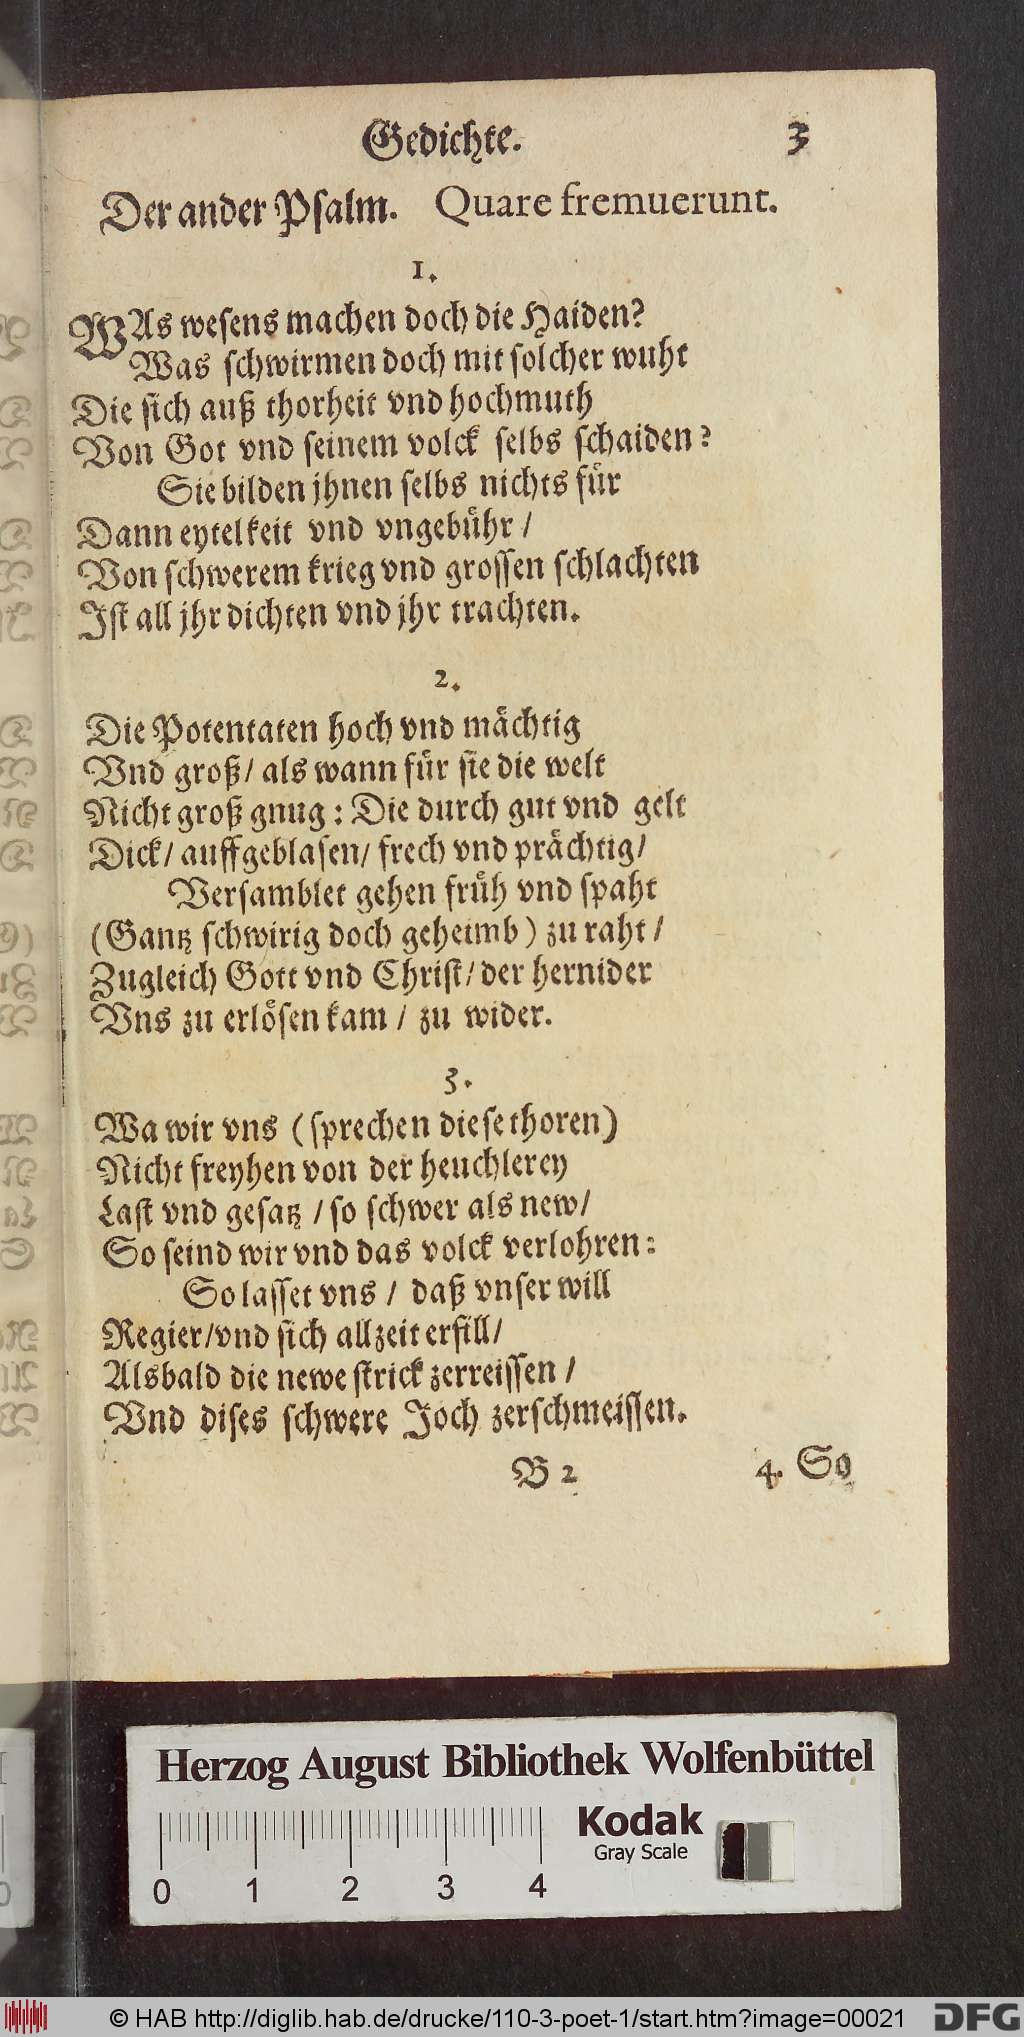 Gedichte. 3
Der ander Psalm. Quare fremuerunt.
1.
WAs wesens machen doch die Haiden?
Was schwirmen doch mit solcher wuht
Die sich auß thorheit vnd hochmuth
Von Got vnd seinem volck selbs schaiden?
Sie bilden jhnen selbs nichts für
Dann eytelkeit vnd vngebühr /
Von schwerem krieg vnd grossen schlachten
Ist all jhr dichten vnd jhr trachten.
2.
Die Potentaten hoch vnd mächtig
Vnd groß / als wann für sie die welt
Nicht groß gnug : Die durch gut vnd gelt
Dick / auffgeblasen / frech vnd prächtig /
Versamblet gehen früh vnd spaht
(Gantz schwirig doch geheimb) zu raht /
Zugleich Gott vnd Christ / der hernider
Vns zu erlösen kam / zu wider.
3.
Wa wir vns (sprechen diese thoren)
Nicht freyhen von der heuchlerey
Last vnd gesatz / so schwer als new /
So seind wir vnd das volck verlohren :
So lasset vns / daß vnser will
Regier / vnd sich allzeit erfill /
Alsbald die newe strick zerreissen /
Vnd dises schwere Joch zerschmeissen.
B 2 4. So
Herzog August Bibliothek Wolfenbüttel
Kodak
Gray Scale
0 1 2 3 4
© HAB http://diglib.hab.de/drucke/110-3-poet-1/start.htm?image=00021
DFG